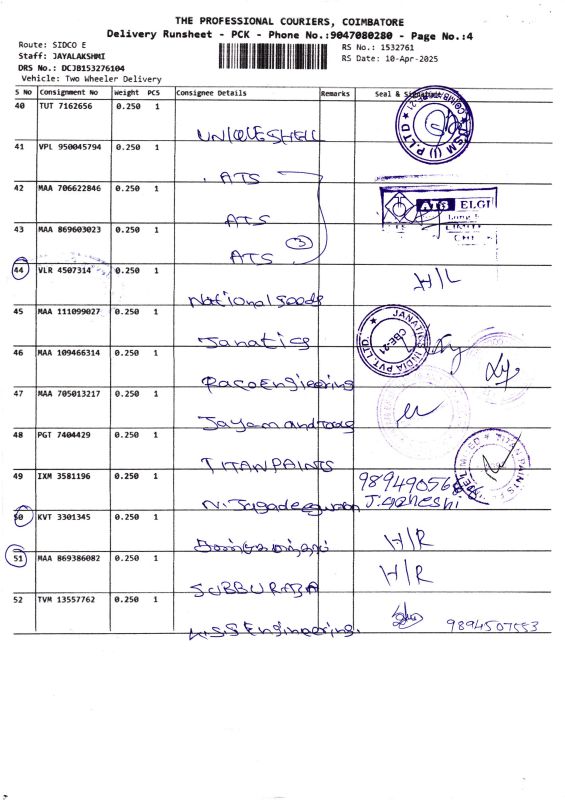 THE PROFESSIONAL COURIERS, COIMBATORE
Delivery Runsheet - PCK - Phone No.:9047080280 - Page No.:4
Route: SIDCO E
RS No.: 1532761
Staff: JAYALAKSHMI
RS Date: 10-Apr-2025
DRS No.: DCJB153276104
Vehicle: Two Wheeler Delivery
S No Consignment No Weight PCS Consignee Details Remarks Seal & Signature
40 TUT 7162656 0.250 1
41 VPL 950045794 0.250 1
ATS
42 MAA 706622846 0.250 1
ATS
ATS ELGI
43 MAA 869603023 0.250 1
ATS 3
44 VLR 4507314 0.250 1 H/L
National Goods
45 MAA 111099027 0.250 1
JANATICS INDIA PVT. LTD
CBE-21
Janatics
46 MAA 109466314 0.250 1
Paco Engineering
47 MAA 705013217 0.250 1
Jayem and Tools
48 PGT 7404429 0.250 1
TITAN PAINTS
TITAN PAINTS
49 IXM 3581196 0.250 1
N. Jagadeeswaran
J. Ganeshi
50 KVT 3301345 0.250 1 H/R
51 MAA 869386082 0.250 1 H/R
SUBBURAJA
52 TVM 13557762 0.250 1 9894507553
Engineering.